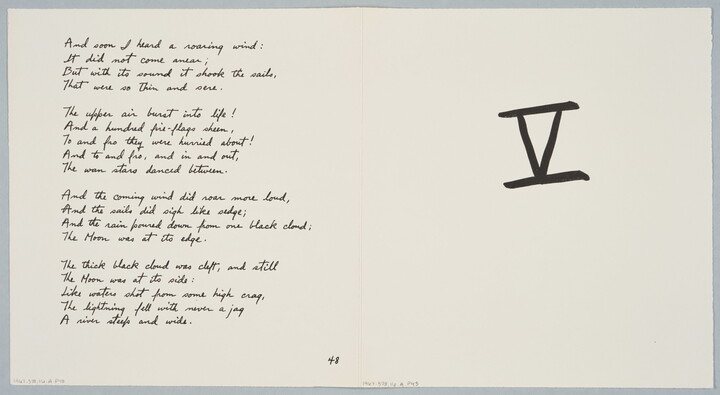 And soon I heard a roaring wind:
It did not come anear;
But with its sound it shook the sails,
That were so thin and sere.
The upper air burst into life!
And a hundred fire-flags sheen,
To and fro they were hurried about!
And to and fro, and in and out,
The wan stars danced between.
And the coming wind did roar more loud,
And the sails did sigh like sedge;
And the rain poured down from one black cloud;
The Moon was at its edge.
The thick black cloud was cleft, and still
The Moon was at its side:
Like waters shot from some high crag,
The lightning fell with never a jag
A river steep and wide.
48
V